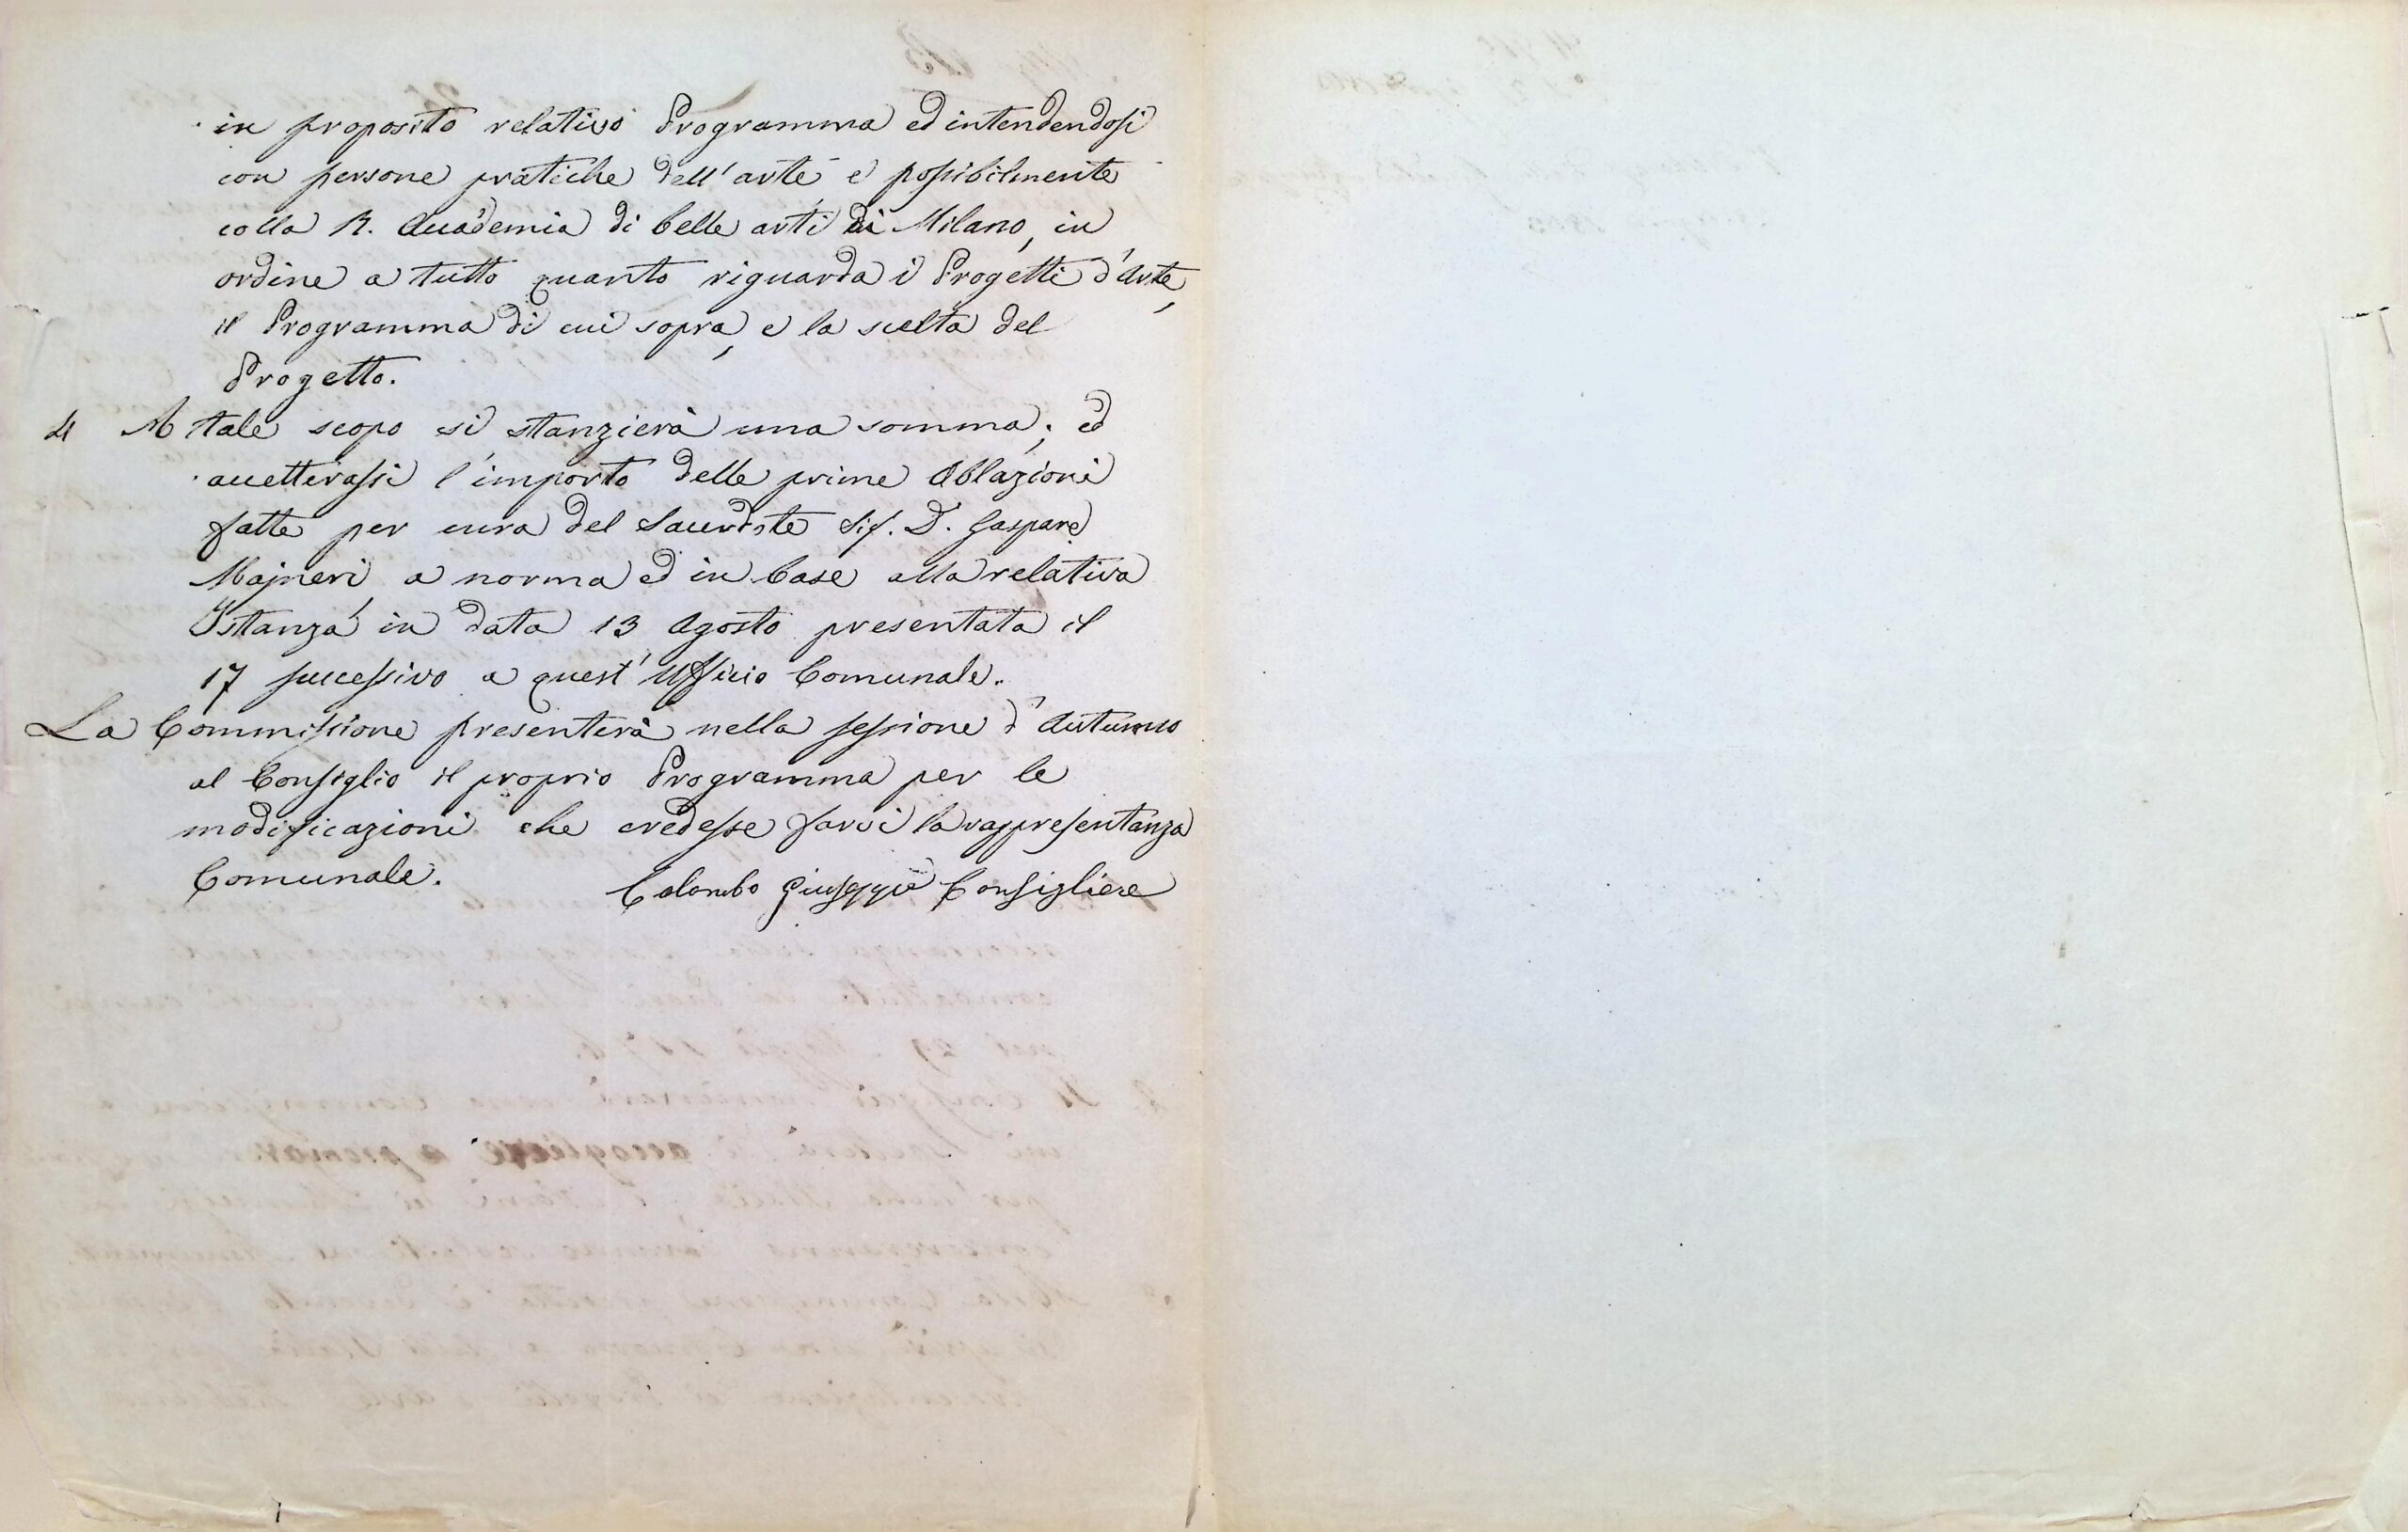 in proposito relativo Programma ed intendendosi
con persone pratiche dell'arte e possibilmente
colla R. Accademia di belle arti di Milano, in
ordine a tutto quanto riguarda i Progetti d'Arte,
il Programma di cui sopra, e la scelta del
Progetto.
4 A tale scopo si stanzierà una somma; ed
accetterassi l'importo delle prime Oblazioni
fatte per cura del Sacerdote Sig. D. Gaspare
Majneri, a norma ed in base alla relativa
Istanza in data 13 Agosto presentata il
17 successivo a quest'Ufficio Comunale.
La Commissione presenterà nella sessione d'Autunno
al Consiglio il proprio Programma per le
modificazioni che credesse farvi la rappresentanza
Comunale.
Colombo Giuseppe Consigliere